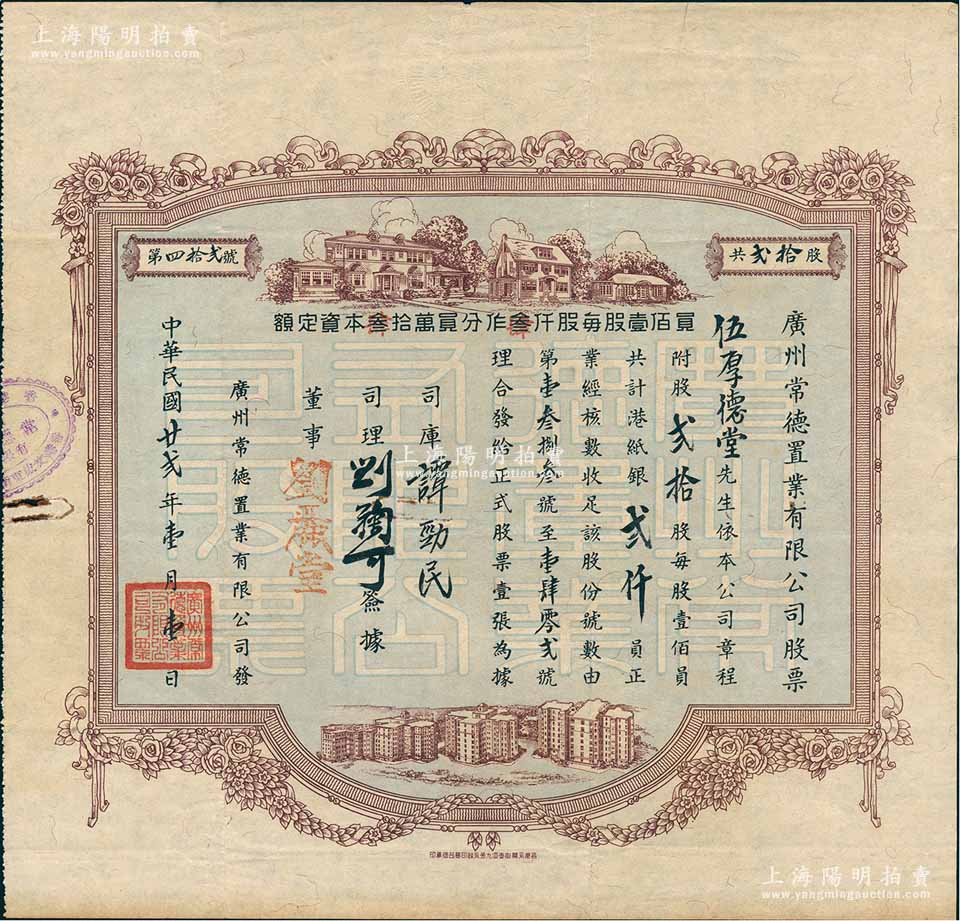 上海陽明拍賣
www.yangmingauction.com
上海陽明拍賣
www.yangmingauction.com
共貳拾股
第四拾貳號
額定資本叁拾萬員分作叁仟股每股壹佰員
廣州常德置業有限公司股票
伍厚德堂先生依本公司章程
附股貳拾股每股壹佰員
共計港紙銀貳仟員正
業經核數收足該股份號數由
第壹叁捌叁號至壹肆零貳號
理合發給正式股票壹張為據
司庫 譚勁民
司理 劉蒲可 簽據
董事 劉嚴堂
廣州常德置業有限公司發
中華民國廿貳年壹月壹日
上海陽明拍賣
www.yangmingauction.com
上海陽明拍賣
www.yangmingauction.com